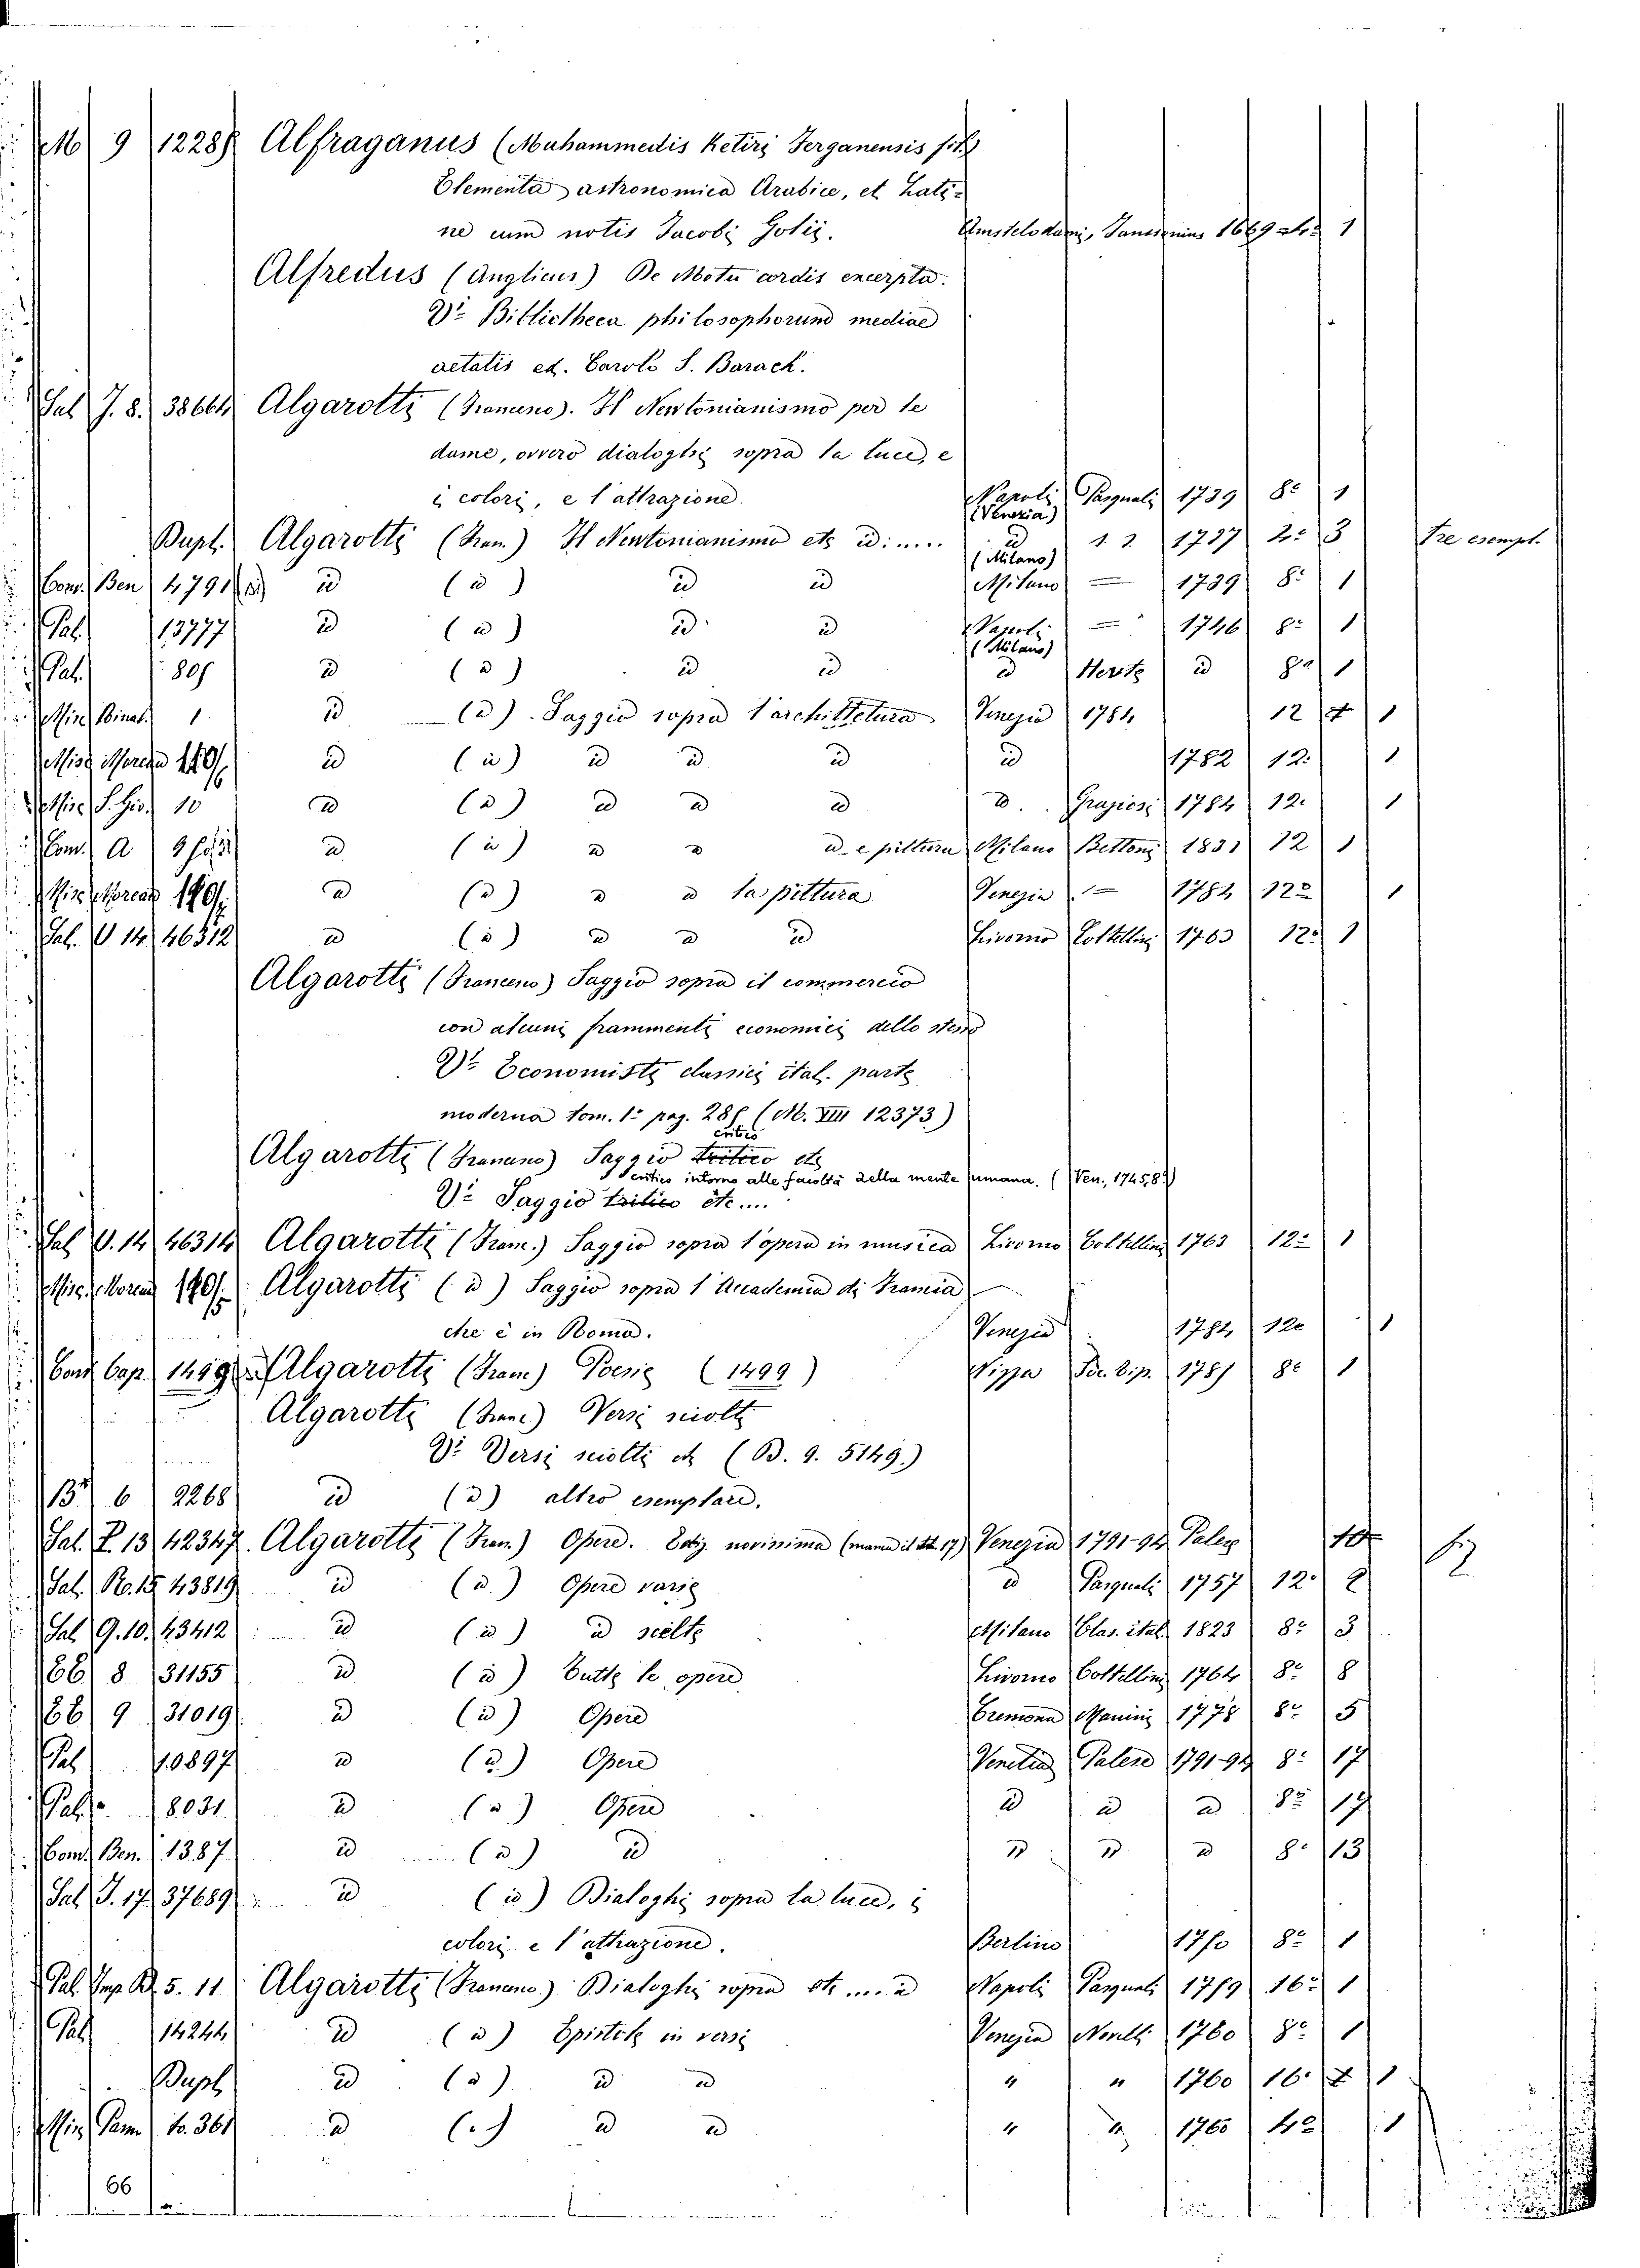 M 9 12285 Alfraganus (Muhammedis Ketiri Ferganensis fil.
Elementa astronomica Arabice, et Lati-
ne cum notis Jacobi Golii. Amstelodami, Janssonius 1669 4º 1
Alfredus (Anglicus) De Motu cordis excerpta.
Vi Bibliotheca philosophorum mediae
aetatis ed. Carolo S. Barach.
Sal J. 8. 38664 Algarotti (Francesco). Il Newtonianismo per le
dame, ovvero dialoghi sopra la luce, e
i colori, e l'attrazione. Napoli Pasquali 1739 8º 1
(Venezia)
Dupl. Algarotti (Fran.) Il Newtonianismo etc id..... id 1737 4º 3 Tre esempl.
(Milano)
Com. Ben 4791 id (id) id id Milano — 1739 8º 1
Pal. 13777 id (id) id id Napoli — 1746 8º 1
(Milano)
Pal. 805 id (id) id id id id 8º 1
Misc. Binal. 1 id (id). Saggio sopra l'archittetura Venezia 1784 12 1
Misc id (id) id id id id 1782 12º 1
Misc S. Gir. 10 id (id) id id id id Graziosi 1784 12º 1
Com. A id (id) id id id e pittura Milano Bettoni 1831 12 1
Misc id (id) id id la pittura Venezia — 1784 12º 1
Sal. V 14 46312 id (id) id id id Livorno Coltellini 1763 12º 1
Algarotti (Francesco) Saggio sopra il commercio
con alcuni frammenti economici dello stesso
Vi Economisti classici ital. parte
moderna tom. 1º pag. 285 (M. VIII 12373)
critico
Algarotti (Francesco) Saggio tritico etc
critico intorno alle facoltà della mente umana. (Ven., 1745, 8º)
Vi Saggio tritico etc....
Sal V. 14 46314 Algarotti (Franc.) Saggio sopra l'opera in musica Livorno Coltellini 1763 12º 1
Misc. Algarotti (id) Saggio sopra l'Accademia di Francia
che è in Roma. Venezia 1784 12º 1
Cont Cap. 1499 Algarotti (Franc) Poesie (1499) Nizza Soc. tip. 1785 8º 1
Algarotti (Franc) Versi sciolti
Vi Versi sciolti etc (B. 9. 5149.)
B 6 2268 id (id) altro esemplare.
Sal. P. 13 42347. Algarotti (Fran.) Opere. Ediz. novissima (manca il t. 17) Venezia 1791-94 Palese
Sal. 43819 id (id.) Opere varie id Pasquali 1757 12º 2
Sal 9. 10. 43412 id (id) id scelte Milano Clas. ital. 1823 8º 3
66 8 31155 id (id) Tutte le opere Livorno Coltellini 1764 8º 8
66 9 31019 id (id) Opere Cremona Manini 1778 8º 5
Pal 10897 id (id.) Opere Venetia Palese 1791-94 8º 17
Pal 8031 id (id) Opere id id id 8º 17
Com. Ben. 1387 id (id) id id id id 8º 13
Sal J. 17 37689 id (id) Dialoghi sopra la luce, i
colori e l'attrazione. Berlino 1750 8º 1
Pal. Imp. B. 5. 11 Algarotti (Francesco) Dialoghi sopra etc .... id Napoli Pasquali 1759 16º 1
Pal 14244 id (id) Epistole in versi Venezia Novelli 1760 8º 1
Dupl id (id) id id " " 1760 16º 1
Misc Pam. to. 361 id (id) id id " " 1760 12 1
66